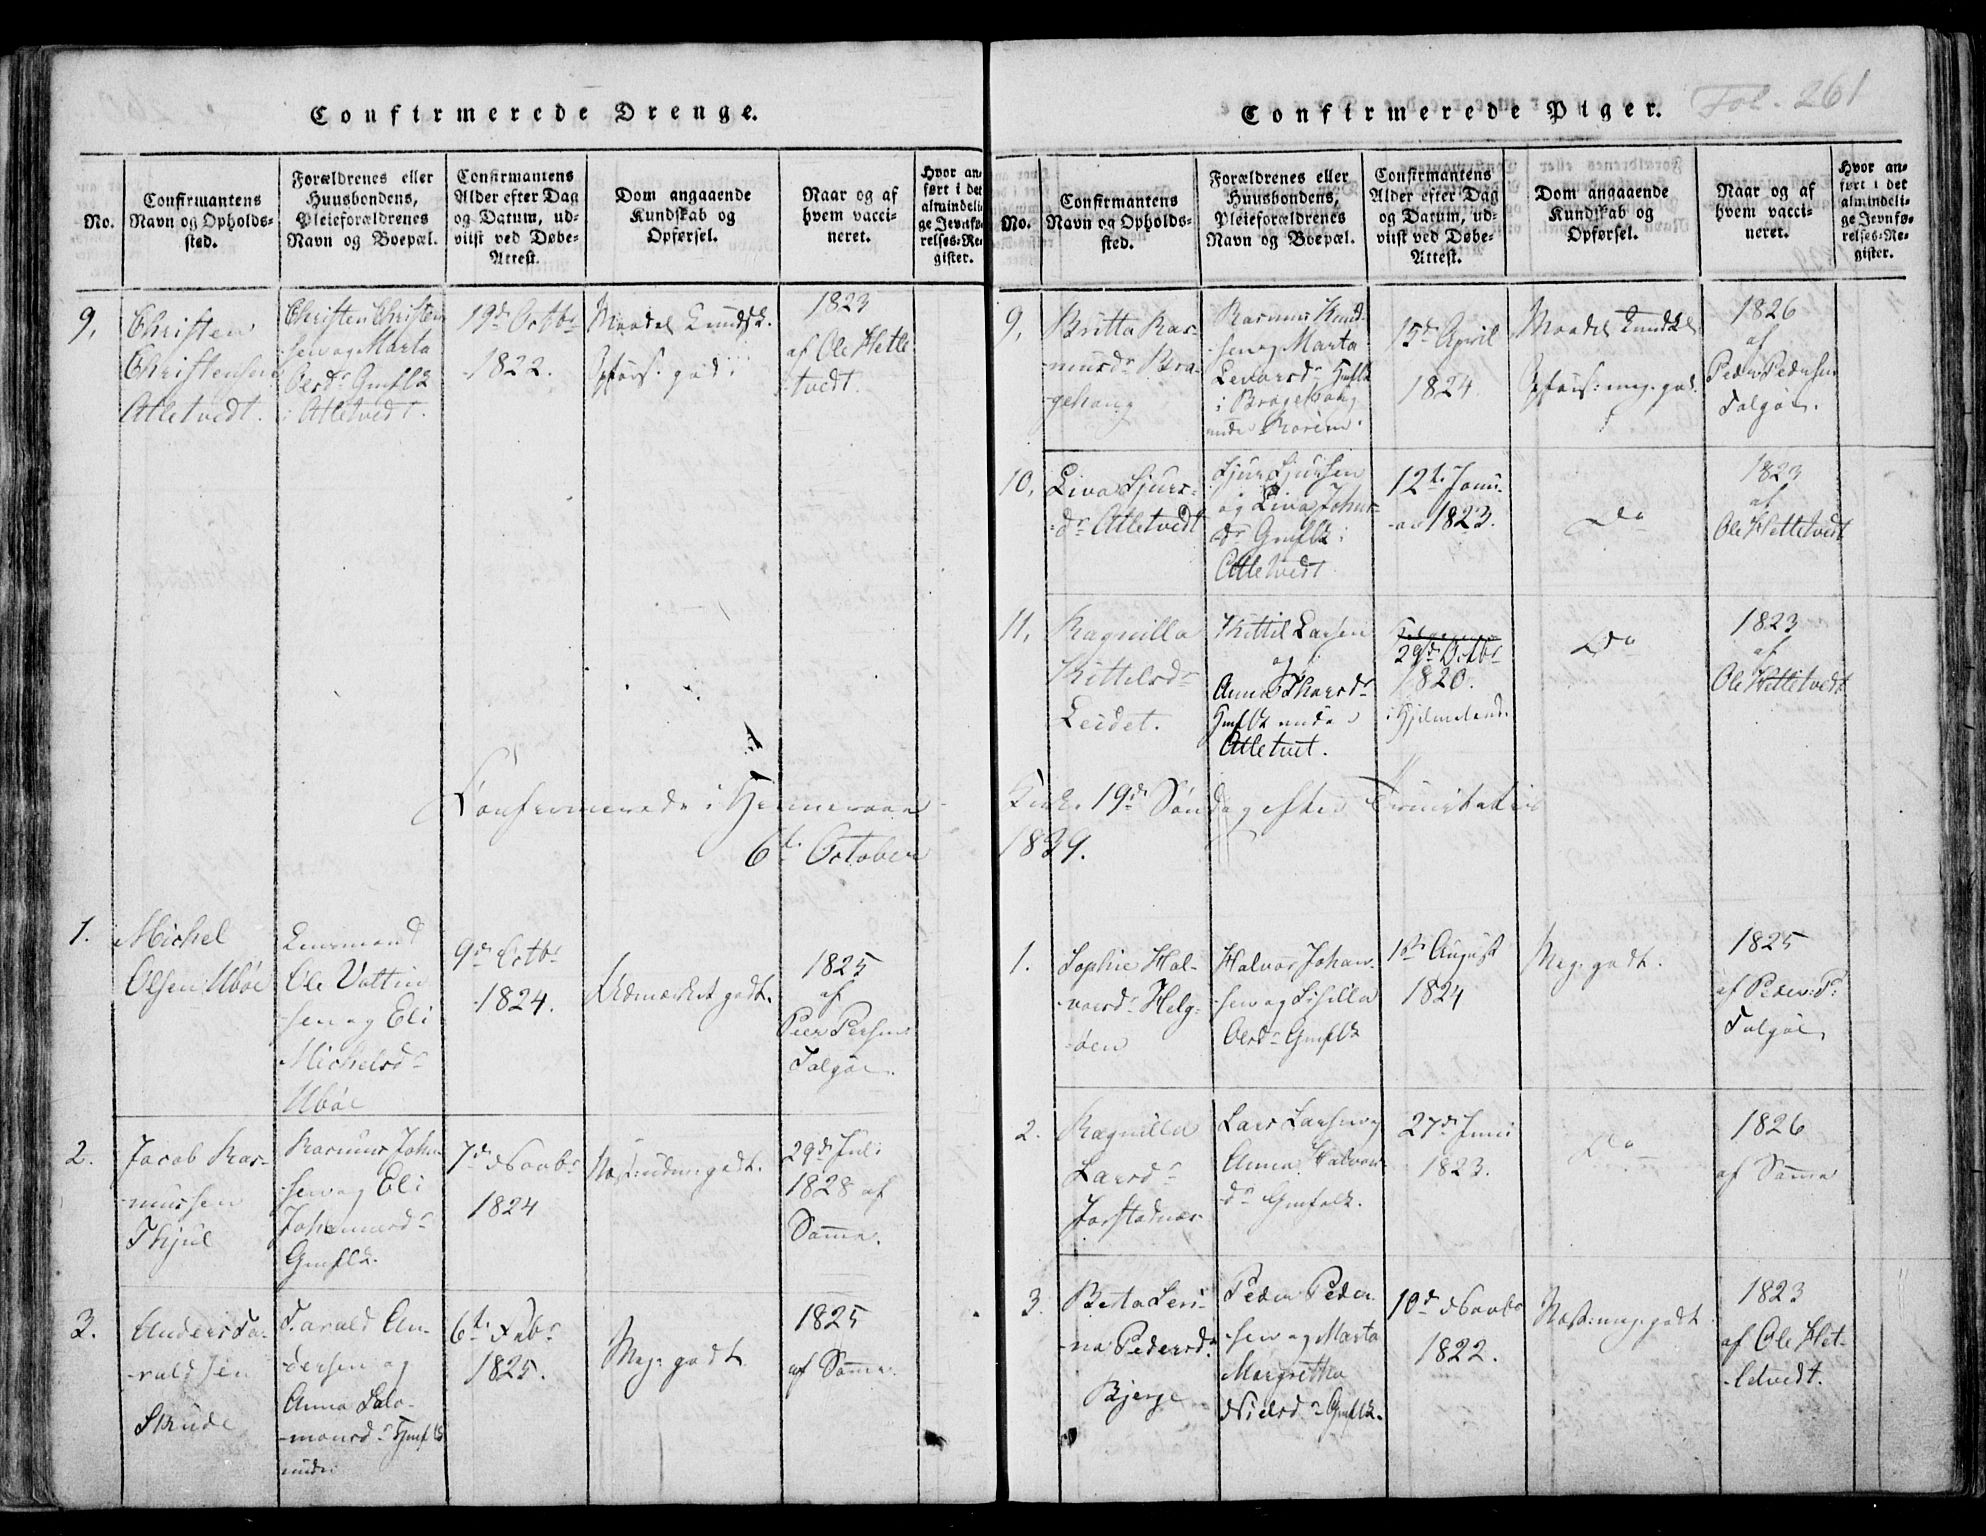 Confirmerede Drenge.
No.
Confirmantens
Navn og Opholds-
sted.
Forældrenes eller
Huusbondens,
Pleieforældrenes
Navn og Boepæl.
Confirmantens
Alder efter Dag
og Datum, ud-
viist ved Døbe-
Attest.
Dom angaaende
Kundskab og
Opførsel.
Naar og af
hvem vacci-
neret.
Hvor an-
ført i det
almindeli-
ge Jevnfø-
relses-Re-
gister.
9.
Christen
Christensen
Atletvedt.
Christen Christen
sen og Marta
Olsdr Gmflk
i Atletvedt.
19d Octbr
1822.
Maadel. Kundsk.
Opførs. god.
1823
af Ole Hetle
tvedt
Confirmerede i Hemeraae
6t October
1.
Michel
Olsen Ubøe
Enermand
Ole
sen og Eli
Michelsdr
Ubøe
9d Octbr
1824.
Udmærket godt.
1825
af
Peer Persen
Talgøe.
2.
Jacob Ras-
mussen
Thjul
Rasmus Joh
sen og Eli
Johannesdr
Gmflk.
7d Novbr
1824
godt.
29d Juli
1828 af
Samme.
3.
Anders Ta-
rald sen
Skude
Tarald An-
dersen og
Anna Salo-
monsdr Hmflk
under
6t Febr
1825.
Meg. godt.
1825
af Samme.
Confirmerede Piger.
Fol. 261
No.
Confirmantens
Navn og Opholds-
sted.
Forældrenes eller
Huusbondens,
Pleieforældrenes
Navn og Boepæl.
Confirmantens
Alder efter Dag
og Datum, ud-
viist ved Døbe-
Attest.
Dom angaaende
Kundskab og
Opførsel.
Naar og af
hvem vacci-
neret.
Hvor an-
ført i det
almindeli-
ge Jevnfø-
relses-Re-
gister.
9.
Britta Ras-
musdr Bra-
gehaug
Rasmus Knud-
sen og Marta
Levorsdr Hmflk
i Bragehaug
under
15d April
1824
Maadel Kundsk
Opførs: meg. god.
1826
af
Peder Pedersen
Talgøe.
10.
Liva Sjurs-
dr Atletvedt
Sjur Sjursen
og Liva Johns-
dr Gmflk i
Atletvedt
12t Janu-
ar 1823.
Do
1823
af
Ole Hettetvedt
11.
Ragnilla
Kittelsdr
Leidet.
Kittil Larsen
og
Anna Thorsdr
Hmflk under
Atletvet.
29d Octbr
1820.
i Hjelmeland.
Do
1823
af
Ole Hettetvedt
Kirke 19d Søndag efter Trinitatis
1839.
1.
Sophie Hal-
vorsdr Helg-
øen
Halvor Johan-
sen og Sisilla
Olsdr Gmflk
1st August
1824
Meg. godt.
1825
af Peder P:
Talgøe.
2.
Ragnilla
Larsdr
Jorstadnær
Lars Larsen og
Anna Halvor
dr Gmfolk.
27d Juni
1823.
Do
1826
af Samme
3.
Berta Seri-
na Pedersdr
Bjerge
Peder Peder
sen og Marta
Margretha
Nielsdr Gmflk.
10d Novbr
1822.
Næst: meg. godt.
1823
af Ole Het-
letvedt.